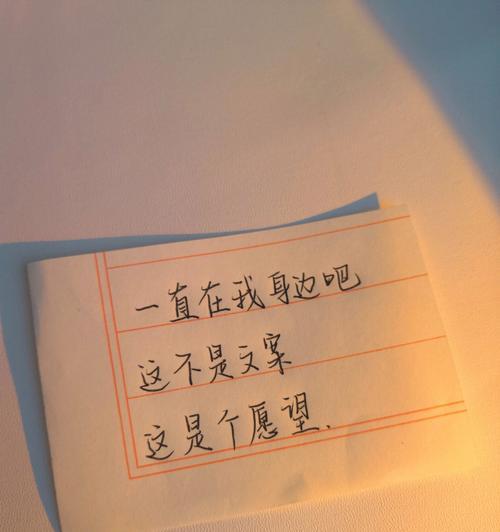 一直在我身边吧
这不是文案
这是个愿望.